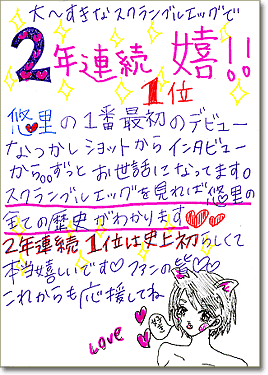 大〜すきなスクランブルエッグで
2年連続 嬉!!
1位
悠里の1番最初のデビュー
なつかしショットからインタビュー
から。。ずっとお世話になってます。
スクランブルエッグを見れば悠里の
全ての歴史がわかります♥♥
2年連続1位は史上初らしくて
本当嬉しいです♡ファンの皆♡♡
これからも応援してね
Love